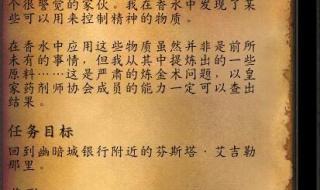 个很警觉的家伙。我在香水中发现了某
些可以用来控制精神的物质。
在香水中应用这些物质虽然并非是前所
未有的事情，但我从其中提炼出的一些
原料……这是严肃的炼金术问题，以皇
家药剂师协会成员的能力一定可以查出
结果。
任务目标
回到幽暗城银行附近的芬斯塔·艾吉勒
那里。